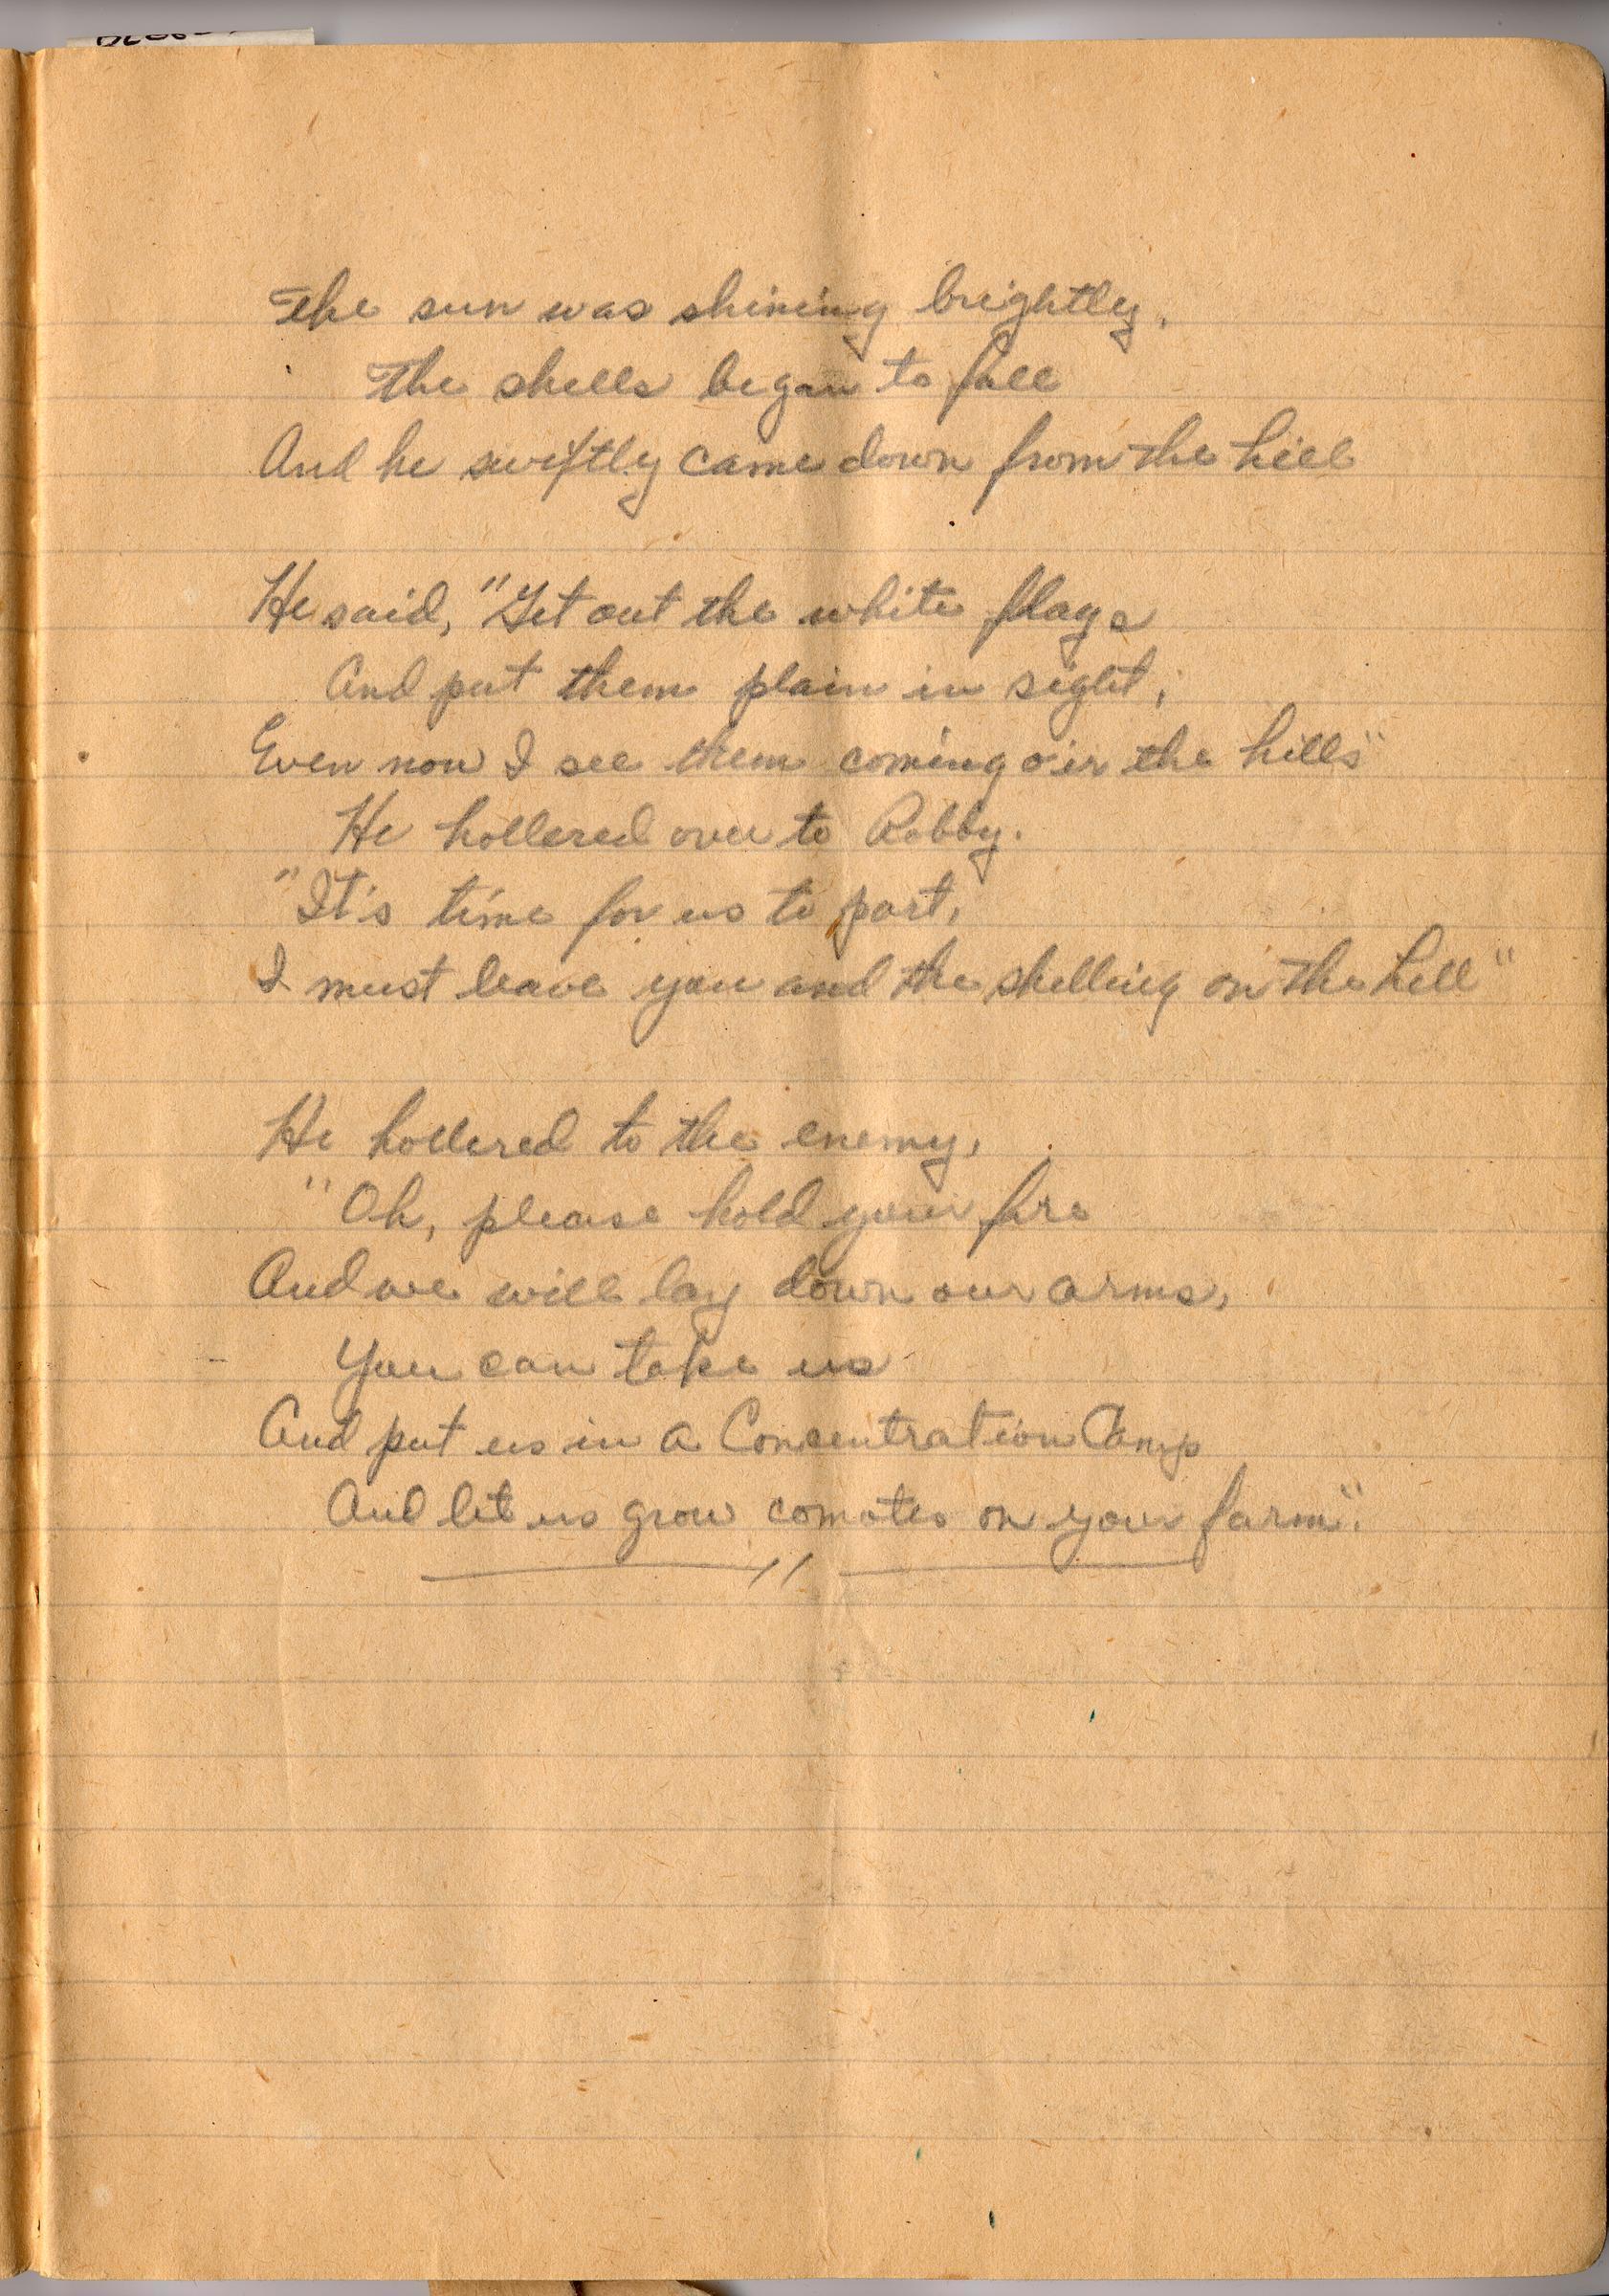 The sun was shining brightly,
The shells began to fall
And he swiftly came down from the hill
He said, "Get out the white flags
And put them plain in sight,
Even now I see them coming o'er the hills"
He hollered over to Robby.
"It's time for us to part,
I must leave you and the shelling on the hill"
He hollered to the enemy,
"Oh, please hold your fire
And we will lay down our arms,
You can take us
And put us in a Concentration Camp
And let us grow comotes on your farm".